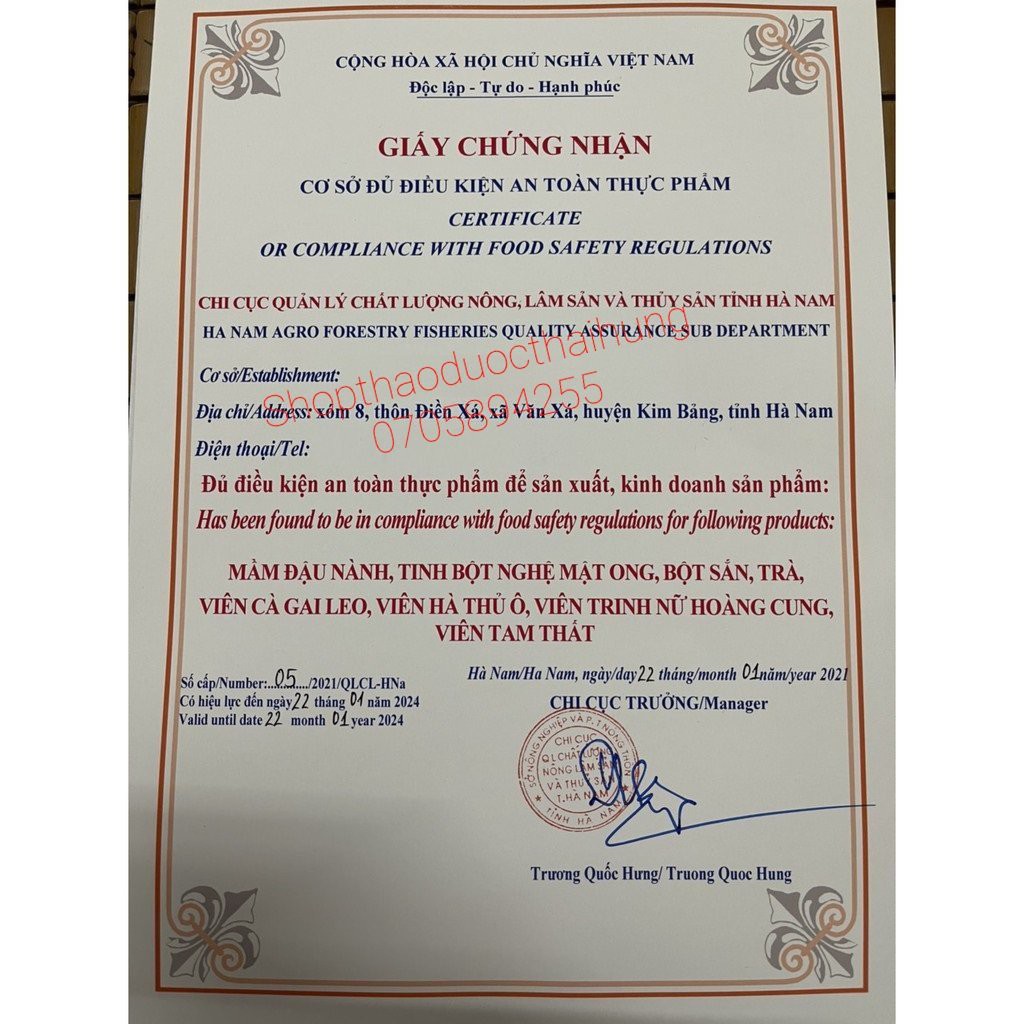 CỘNG HÒA XÃ HỘI CHỦ NGHĨA VIỆT NAM
Độc lập - Tự do - Hạnh phúc
GIẤY CHỨNG NHẬN
CƠ SỞ ĐỦ ĐIỀU KIỆN AN TOÀN THỰC PHẨM
CERTIFICATE
OR COMPLIANCE WITH FOOD SAFETY REGULATIONS
CHI CỤC QUẢN LÝ CHẤT LƯỢNG NÔNG, LÂM SẢN VÀ THỦY SẢN TỈNH HÀ NAM
HA NAM AGRO FORESTRY FISHERIES QUALITY ASSURANCE SUB DEPARTMENT
Shopthaoduocthaihung
0705894255
Cơ sở/Establishment:
Địa chỉ/Address: xóm 8, thôn Điền Xá, xã Văn Xá, huyện Kim Bảng, tỉnh Hà Nam
Điện thoại/Tel:
Đủ điều kiện an toàn thực phẩm để sản xuất, kinh doanh sản phẩm:
Has been found to be in compliance with food safety regulations for following products:
MẦM ĐẬU NÀNH, TINH BỘT NGHỆ MẬT ONG, BỘT SẮN, TRÀ,
VIÊN CÀ GAI LEO, VIÊN HÀ THỦ Ô, VIÊN TRINH NỮ HOÀNG CUNG,
VIÊN TAM THẤT
Số cấp/Number:...05..../2021/QLCL-HNa
Có hiệu lực đến ngày 22 tháng 01 năm 2024
Valid until date 22 month 01 year 2024
Hà Nam/Ha Nam, ngày/day 22 tháng/month 01 năm/year 2021
CHI CỤC TRƯỞNG/Manager
SỞ NÔNG NGHIỆP VÀ P.T NÔNG THÔN
CHI CỤC
QL CHẤT LƯỢNG
NÔNG LÂM SẢN
VÀ THUỶ SẢN
T.HÀ NAM
TỈNH HÀ NAM
Trương Quốc Hưng/ Truong Quoc Hung